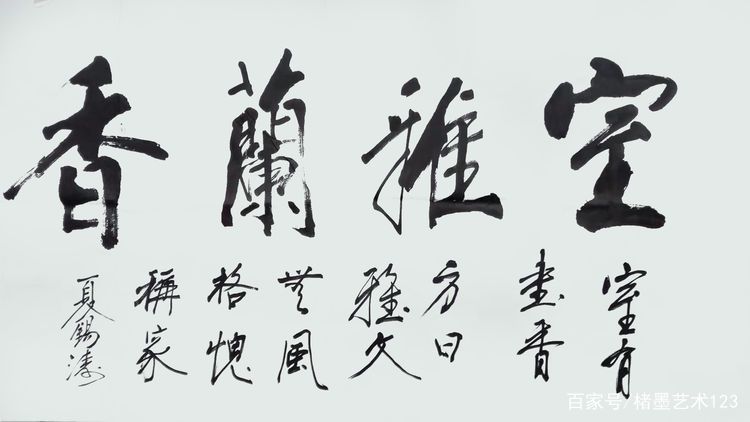 室雅蘭香
室有
書香
方曰
雅文
無風
格愧
稱家
夏錫濤
百家号/楮墨艺术123